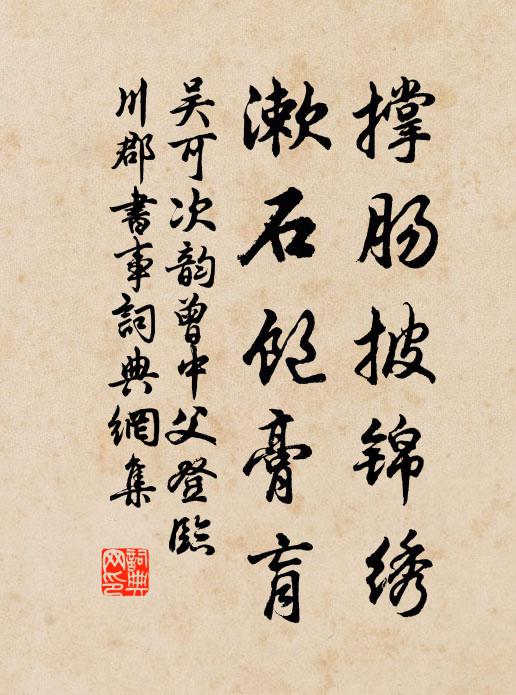 撑肠披锦绣
漱石饱膏肓
吴可次韵曾中父登臨
川郡書事詞典網集
詞典网印